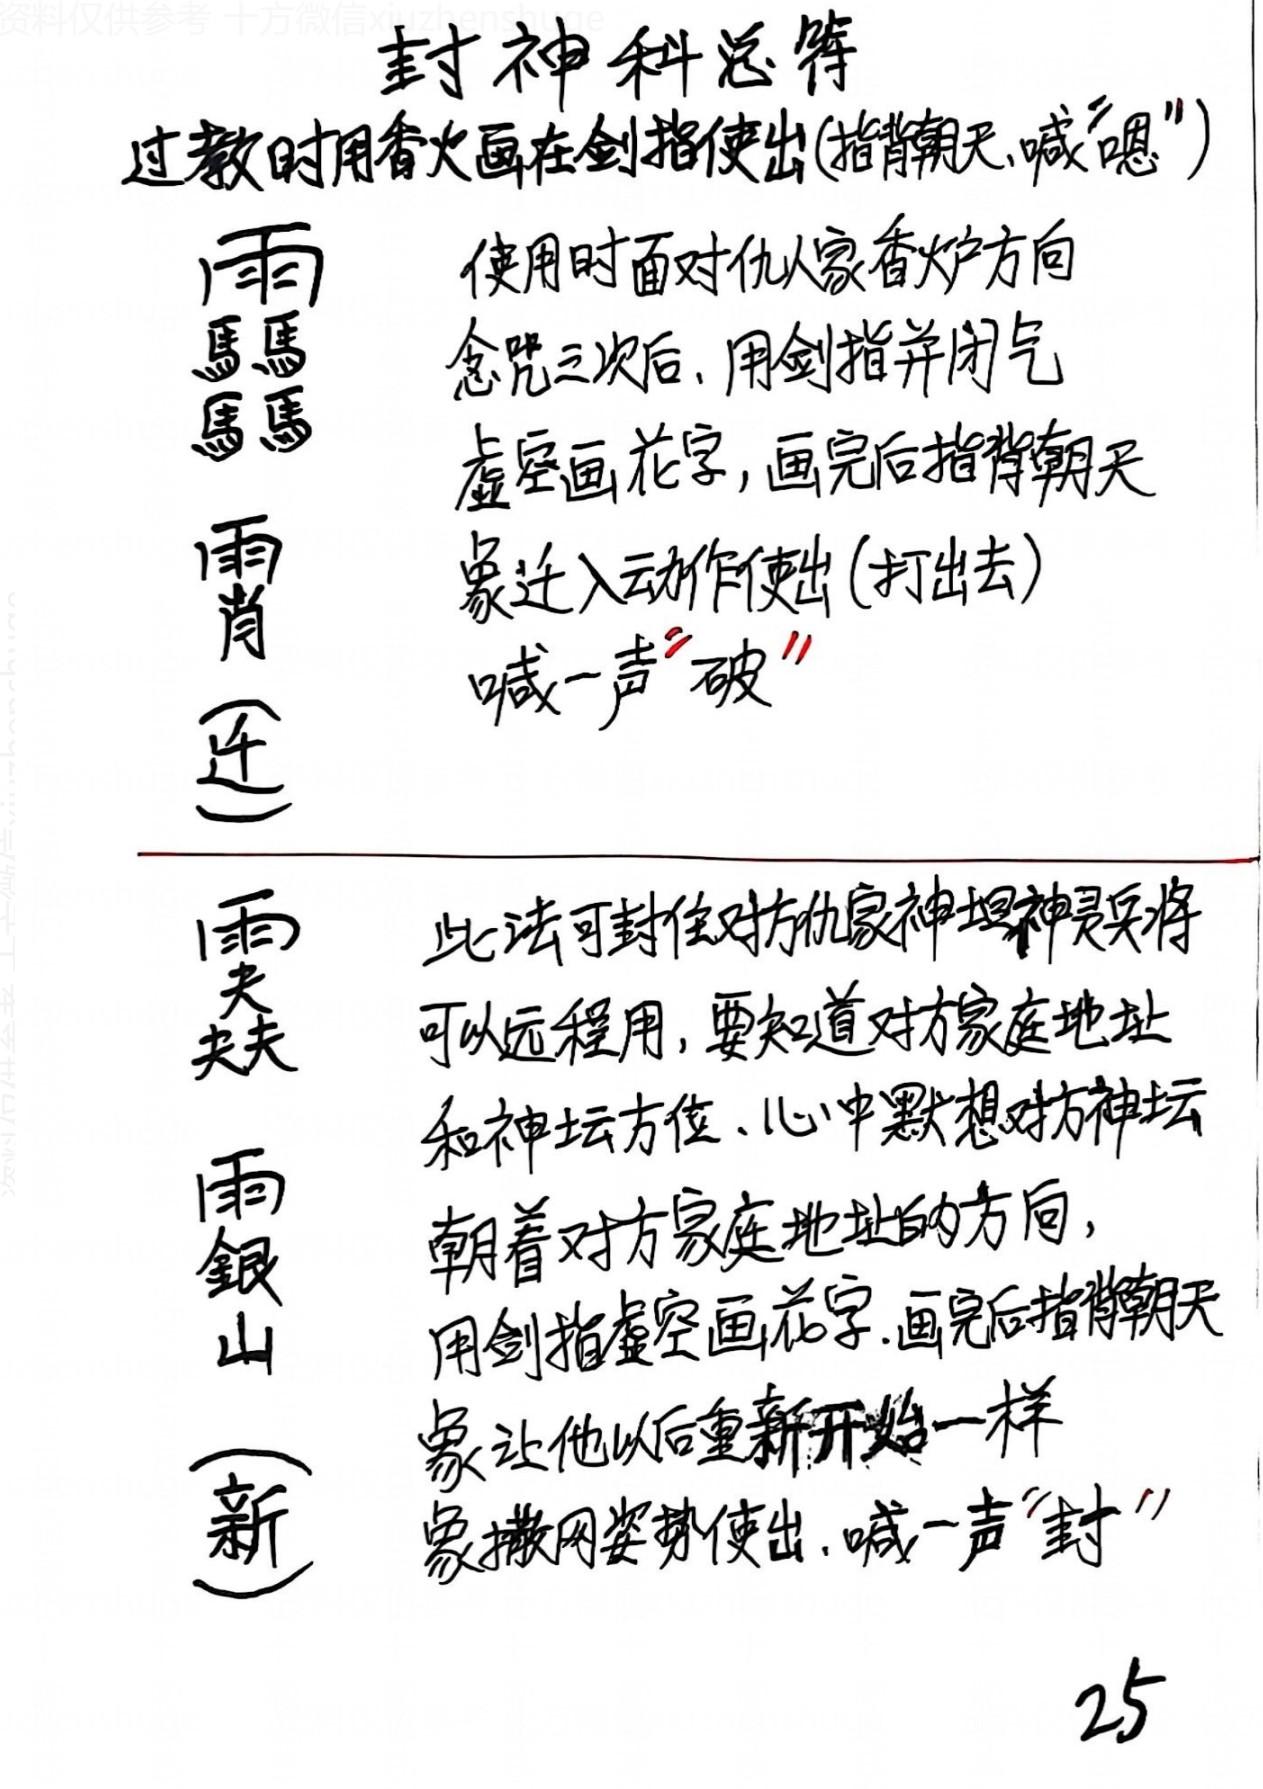 资料仅供参考 十方微信xiuzhenshuge
封神科总符
过教时用香火画在剑指使出(指背朝天、喊“嗯”)
雨
馬馬
馬馬
雨
肖
(迁)
使用时面对仇人家香炉方向
念咒三次后、用剑指并闭气
虚空画花字,画完后指背朝天
象迁入动作使出(打出去)
喊一声“破”
雨
夫
夫夫
雨
銀
山
(新)
此法可封住对方仇家神坛神灵兵将
可以远程用,要知道对方家庭地址
和神坛方位、心中默想对方神坛
朝着对方家庭地址的方向,
用剑指虚空画花字.画完后指背朝天
象让他以后重新开始一样
象撒网姿势使出.喊一声“封”
25